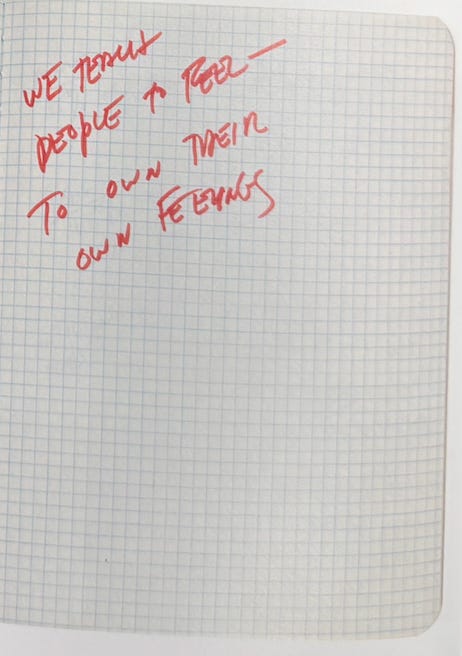 WE TEACH
PEOPLE TO FEEL—
TO OWN THEIR
OWN FEELINGS